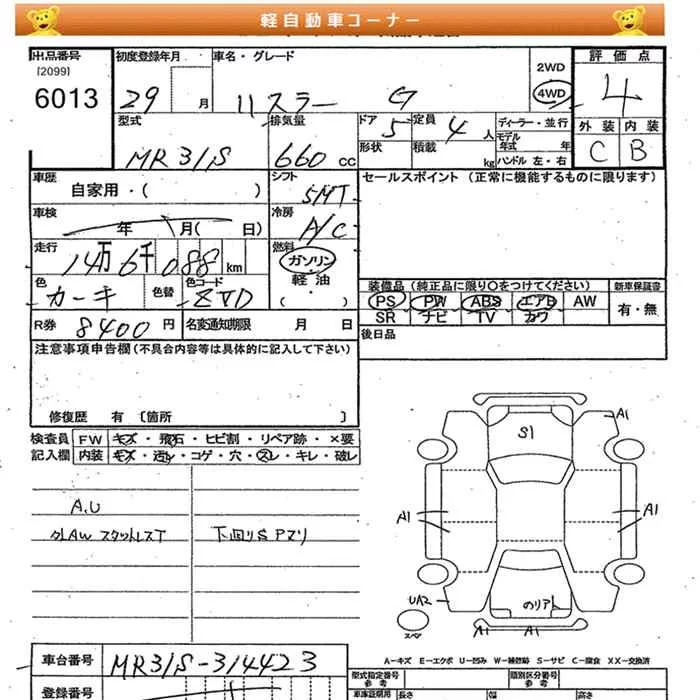 軽自動車コーナー
出品番号
[2099]
6013
初度登録年月
29 月
車名・グレード
ハスラー G
2WD
4WD
評価点
4
外装 内装
C B
型式
MR31S
排気量
660 cc
ドア
5
形状
定員
4 人
積載
kg
ディーラー・並行
モデル年式 年
ハンドル 左・右
車歴
自家用・( )
シフト
5MT
セールスポイント (正常に機能するものに限ります)
車検
年 月( 日)
冷房
A/C
走行
14万6千088 km
燃料
ガソリン
軽油
( )
色
カーキ
色替
色コード
ZVD
装備品 (純正品に限り○をつけてください)
PS PW ABS エアB AW
SR ナビ TV カワ
新車保証書
有・無
R券 8400 円
名変通知期限 月 日
後日品
注意事項申告欄(不具合内容等は具体的に記入して下さい)
修復歴 有 〔箇所 〕
検査員
記入欄
FW キズ・飛石・ヒビ割・リペア跡・×要
内装 キズ・汚れ・コゲ・穴・スレ・キレ・破レ
A.U
外AW スタットレスT
下回りS Pマリ
A1
S1
A1
A1
UA2
のリアト
スペア
A1
A1
車台番号 MR31S-314423
登録番号
A-キズ E-エクボ U-凹み W-補修跡 S-サビ C-腐食 XX-交換済
型式指定番号
参考
類別区分番号
参考
車庫証明用
長さ
幅
高さ